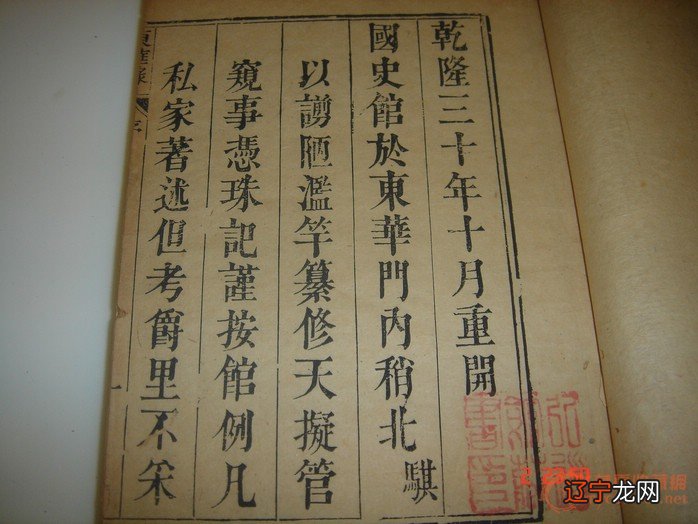 乾隆三十年十月重開
國史館於東華門內稍北騏
以謭陋濫竽纂修天擬管
窺事憑珠記謹按館例凡
私家著述但考爵里不采
東華錄
序
一
辽宁龙网